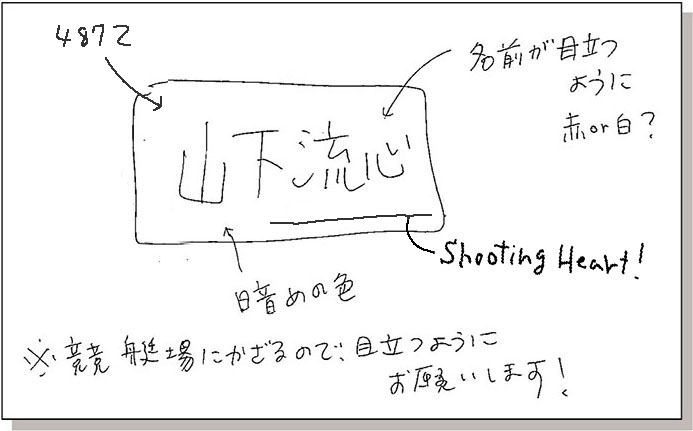 4872
名前が目立つ
ように
赤or白？
山下流心
Shooting Heart!
暗めの色
※競艇場にかざるので、目立つように
お願いします！